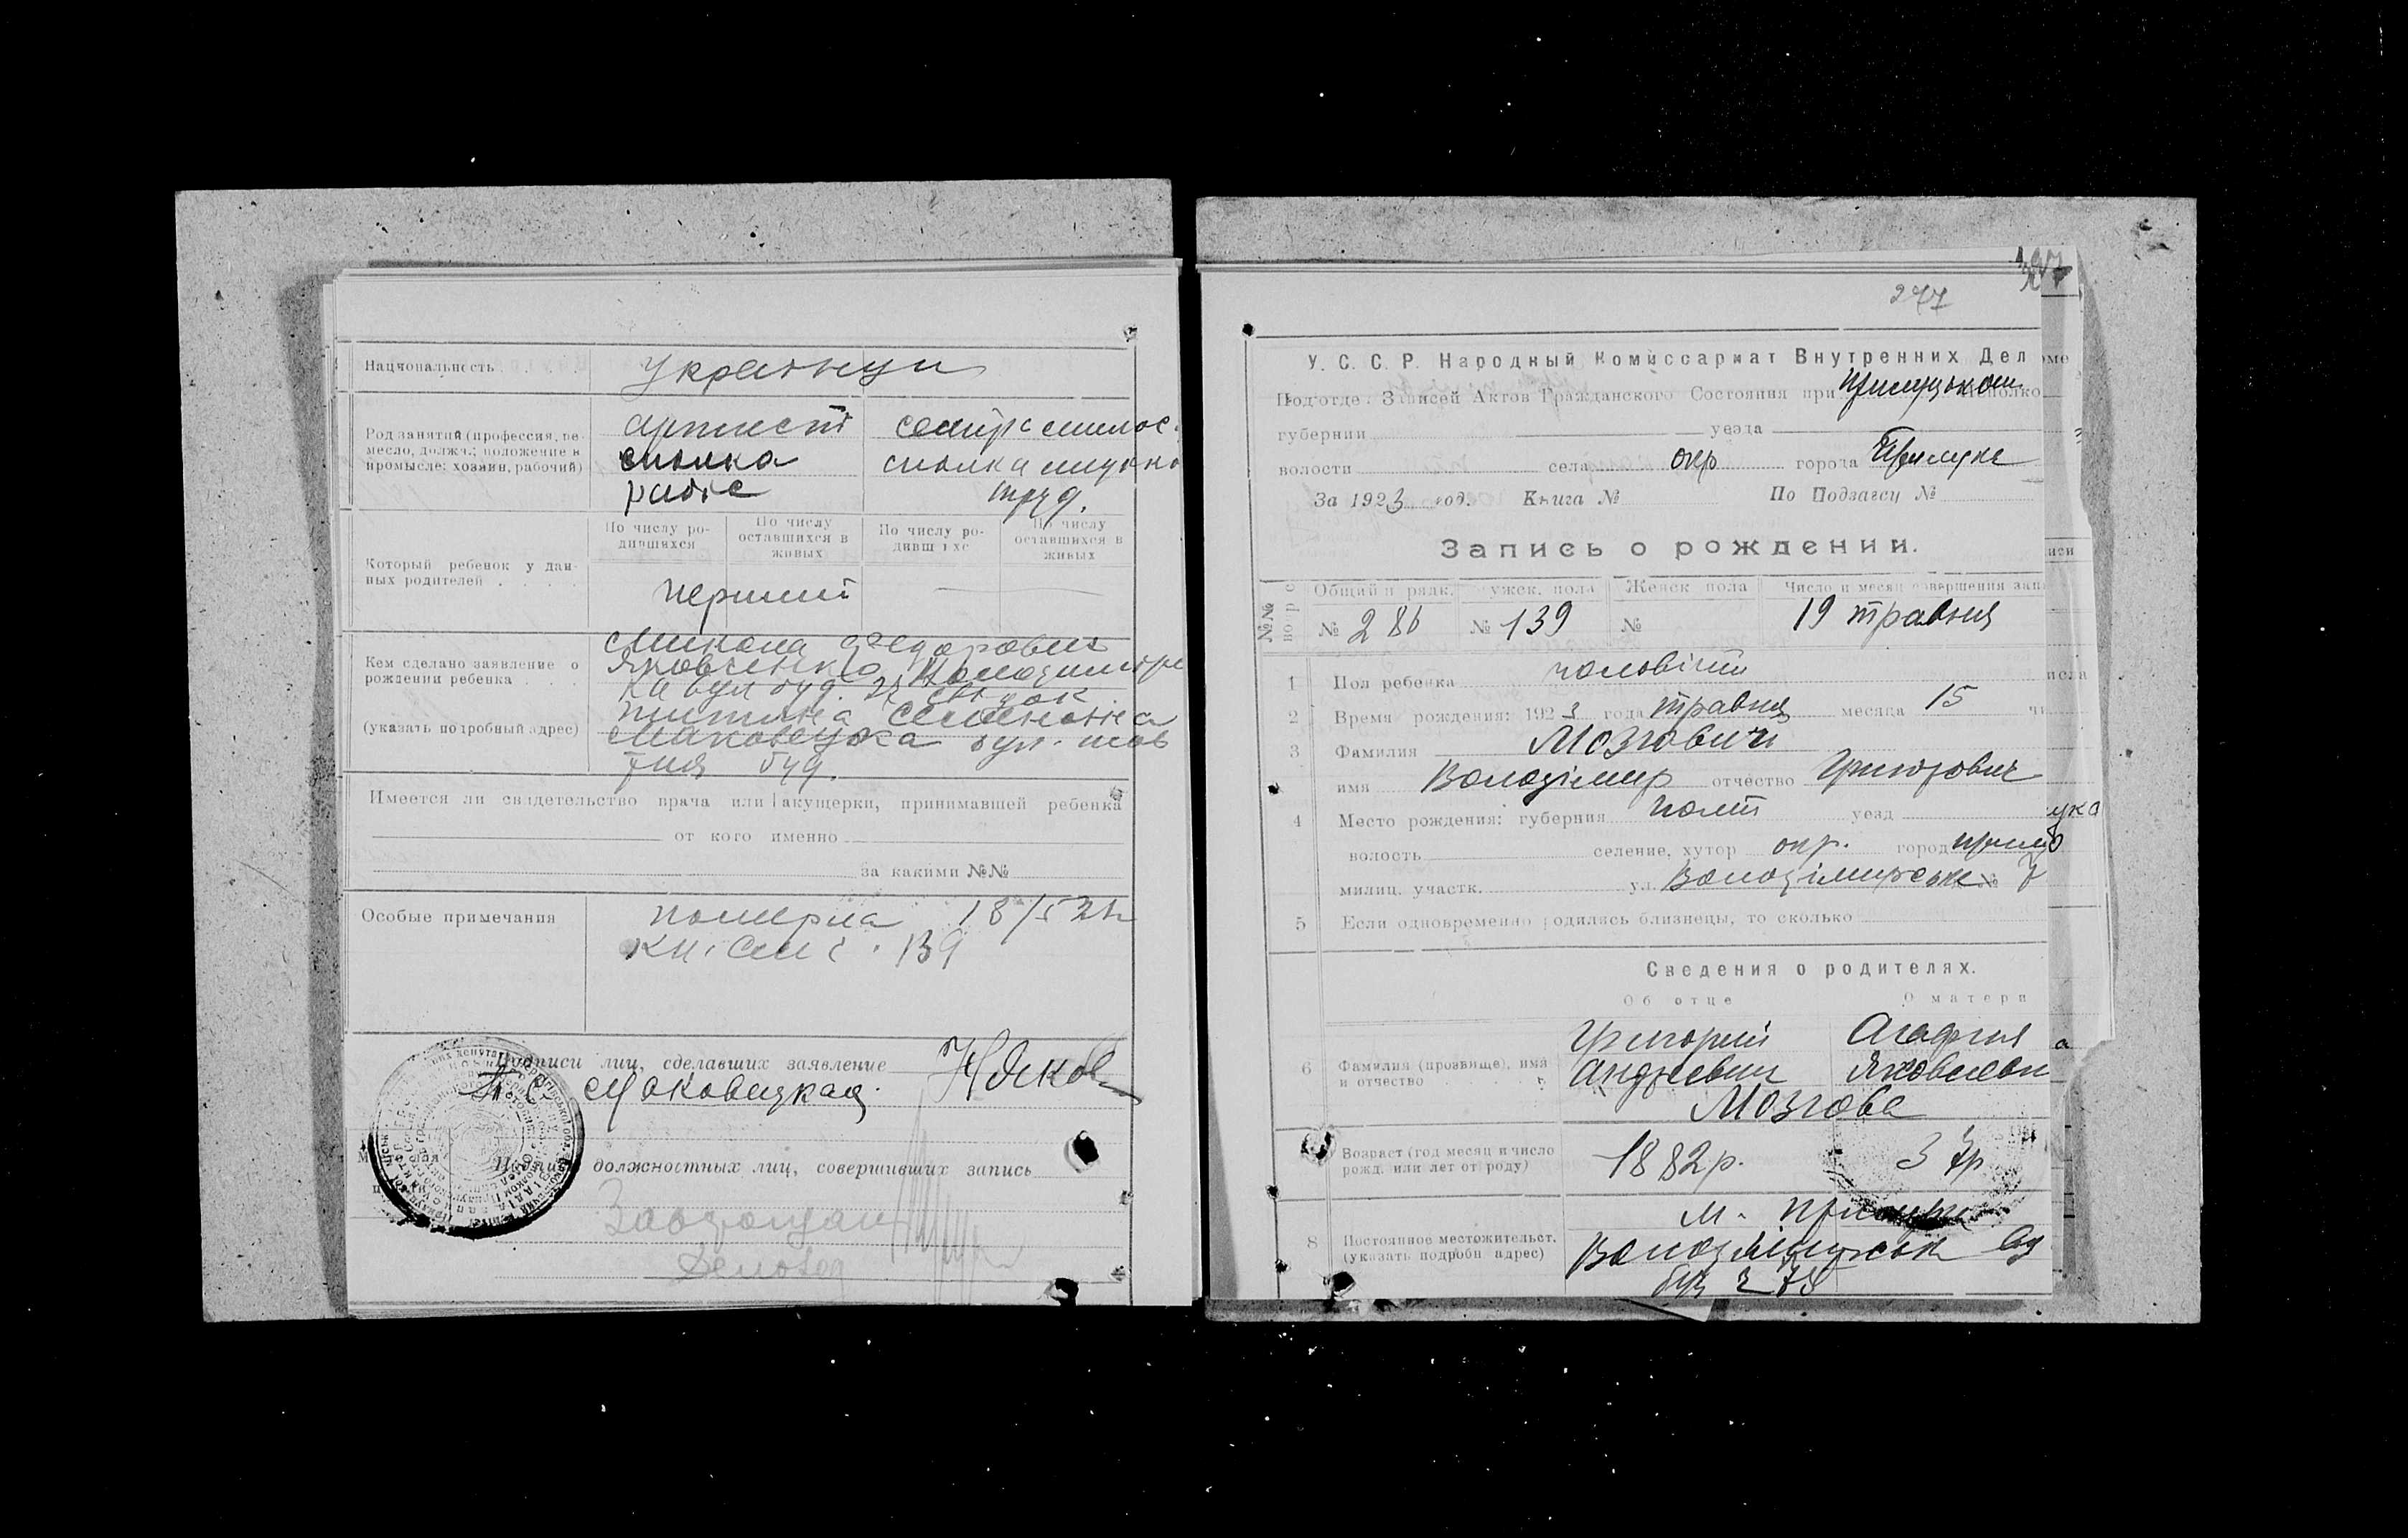 Национальность
українці
Род занятий (профессия, ре-
месло, должн.; положение в
промысле: хозяин, рабочий)
артист
спілка
сестра милос.
спілка
труд.
Который ребенок у дан-
ных родителей
По числу ро-
дившихся
По числу
оставшихся в
живых
По числу ро-
дивш хс
По числу
оставшихся в
живых
перший
Кем сделано заявление о
рождении ребенка
(указать подробный адрес)
Микола Федорович
Яковченко
вул буд. свідок
Семеновна
Маковецька вул.
буд.
Имеется ли свидетельство врача или акушерки, принимавшей ребенка
от кого именно
за какими №№
Особые примечания
померла 18/5
139
Подписи лиц, сделавших заявление
С Маковецкая Н Яков
Подписи должностных лиц, совершивших запись
Завідующий
Діловод
277
У. С. С. Р. Народный Комиссариат Внутренних Дел
Подотде. Записей Актов Гражданского Состояния при Прилуцьком
губернии уезда
волости села окр города Прилуки
За 1923 год. Книга № По Подзагсу №
Запись о рождении.
№№
Общий п рядк. ужск. пола Женск пола Число и месяц совершения зап
№ 286 № 139 № 19 травня
1 Пол ребенка чоловічий
2 Время рождения: 1923 года травня месяца 15 чи
3 Фамилия Мозговий
имя Володімир отчество Григорович
4 Место рождения: губерния Полт уезд
волость селение, хутор окр. город Прилу
милиц. участк. ул. Володімирська № 7
5 Если одновременно родились близнецы, то сколько
Сведения о родителях.
Об отце О матери
6 Фамилия (прозвище), имя
и отчество
Григорий Агафия
Андреевич Яковлевн
Мозгова
Возраст (год месяц и число
рожд. или лет от роду)
1882 р. 37р
8 Постоянное местожительст.
(указать подробн адрес)
м. Прилуки
Володімирськ
буд 78